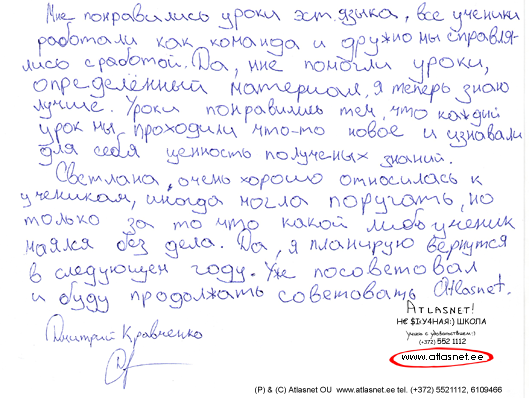 Мне понравились уроки эст. языка, все ученики
работали как команда и дружно мы справля-
лись с работой. Да, мне помогли уроки,
определённый материал, я теперь знаю
лучше. Уроки понравились тем, что каждый
урок мы проходили что-то новое и узнавали
для себя ценность полученых знаний.
Светлана, очень хорошо относилась к
ученикам, иногда могла поругать, но
только за то что какой либо ученик
маялся без дела. Да, я планирую вернутся
в следующем году. Уже посоветовал
и буду продолжать советовать Atlasnet.
Дмитрий Кравченко
ATLASNET!
НЕ $Dy4НАЯ:) ШКОЛА
учись с удовольствием:)
(+372) 552 1112
www.atlasnet.ee
(P) & (C) Atlasnet OU www.atlasnet.ee tel. (+372) 5521112, 6109466